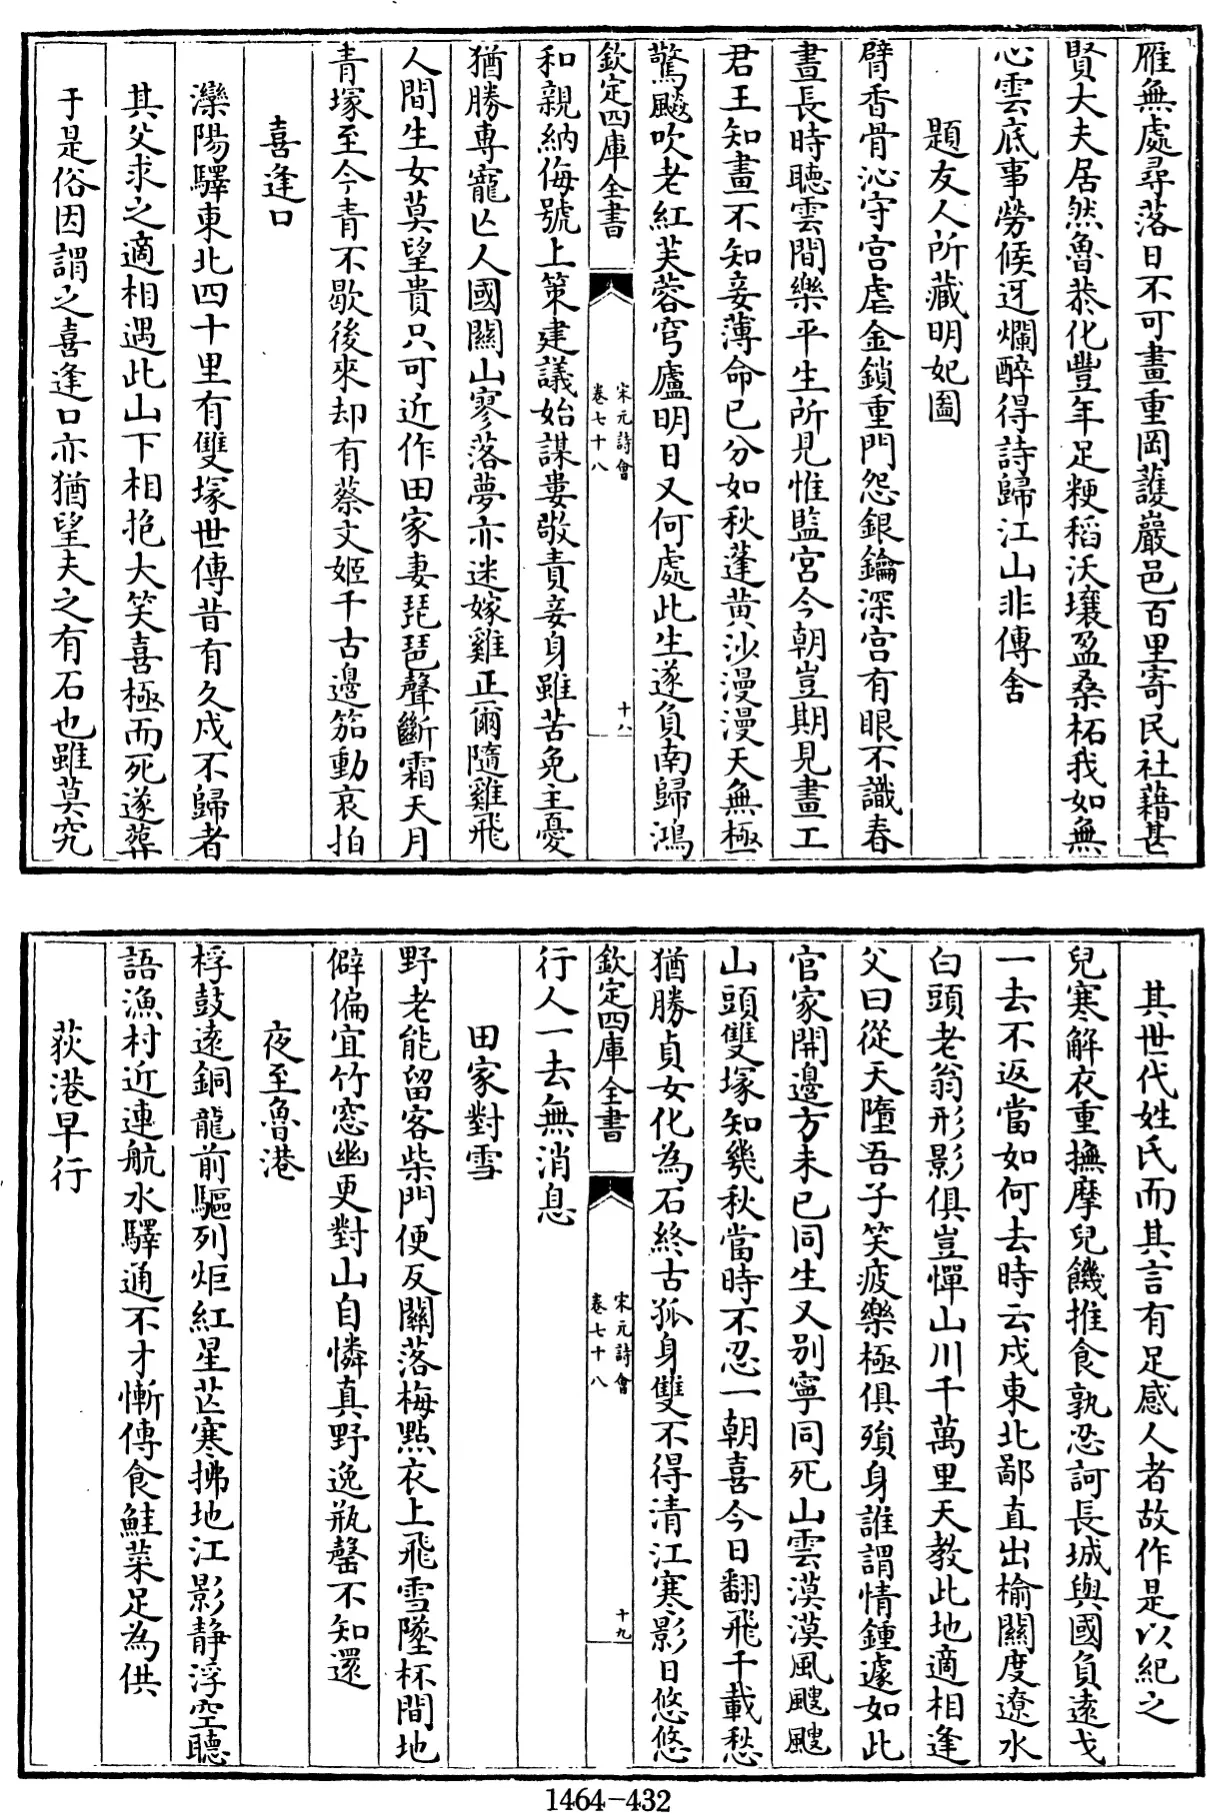 雁無處尋落日不可畫重岡護嚴邑百里寄民社藉甚
賢大夫居然魯恭化豐年足粳稻沃壤盈桑柘我如無
心雲底事勞候迓爛醉得詩歸江山非傳舍
題友人所藏明妃圖
臂香骨沁守宮虐金鎖重門怨銀鑰深宮有眼不識春
晝長時聽雲間樂平生所見惟監宮今朝豈期見畫工
君王知畫不知妾薄命已分如秋蓬黄沙漫漫天無極
驚飈吹老紅芙蓉穹廬明日又何處此生遂負南歸鴻
欽定四庫全書
宋元詩會
卷七十八
十八
和親納侮號上策建議始謀婁敬責妾身雖苦免主憂
猶勝專寵亡人國關山寥落夢亦迷嫁雞正爾隨雞飛
人間生女莫望貴只可近作田家妻琵琶聲斷霜天月
青塚至今青不歇後來却有蔡文姬千古邊笳動哀拍
喜逢口
灤陽驛東北四十里有雙塚世傳昔有久戍不歸者
其父求之適相遇此山下相抱大笑喜極而死遂葬
于是俗因謂之喜逢口亦猶望夫之有石也雖莫究
其世代姓氏而其言有足感人者故作是以紀之
兒寒解衣重撫摩兒饑推食孰忍訶長城與國負遠戈
一去不返當如何去時云戍東北鄙直出榆關度遼水
白頭老翁形影俱豈憚山川千萬里天教此地適相逢
父曰從天墮吾子笑疲樂極俱殞身誰謂情鍾遽如此
官家開邊方未已同生又别寧同死山雲漠漠風颼颼
山頭雙塚知幾秋當時不忍一朝喜今日翻飛千載愁
猶勝貞女化為石終古孤身雙不得清江寒影日悠悠
欽定四庫全書
宋元詩會
卷七十八
十九
行人一去無消息
田家對雪
野老能留客柴門便反關落梅點衣上飛雪墜杯間地
僻偏宜竹窓幽更對山自憐真野逸瓶罄不知還
夜至魯港
桴鼓遠銅龍前驅列炬紅星芒寒拂地江影静浮空聽
語漁村近連航水驛通不才慚傳食鮭菜足為供
荻港早行
1464-432